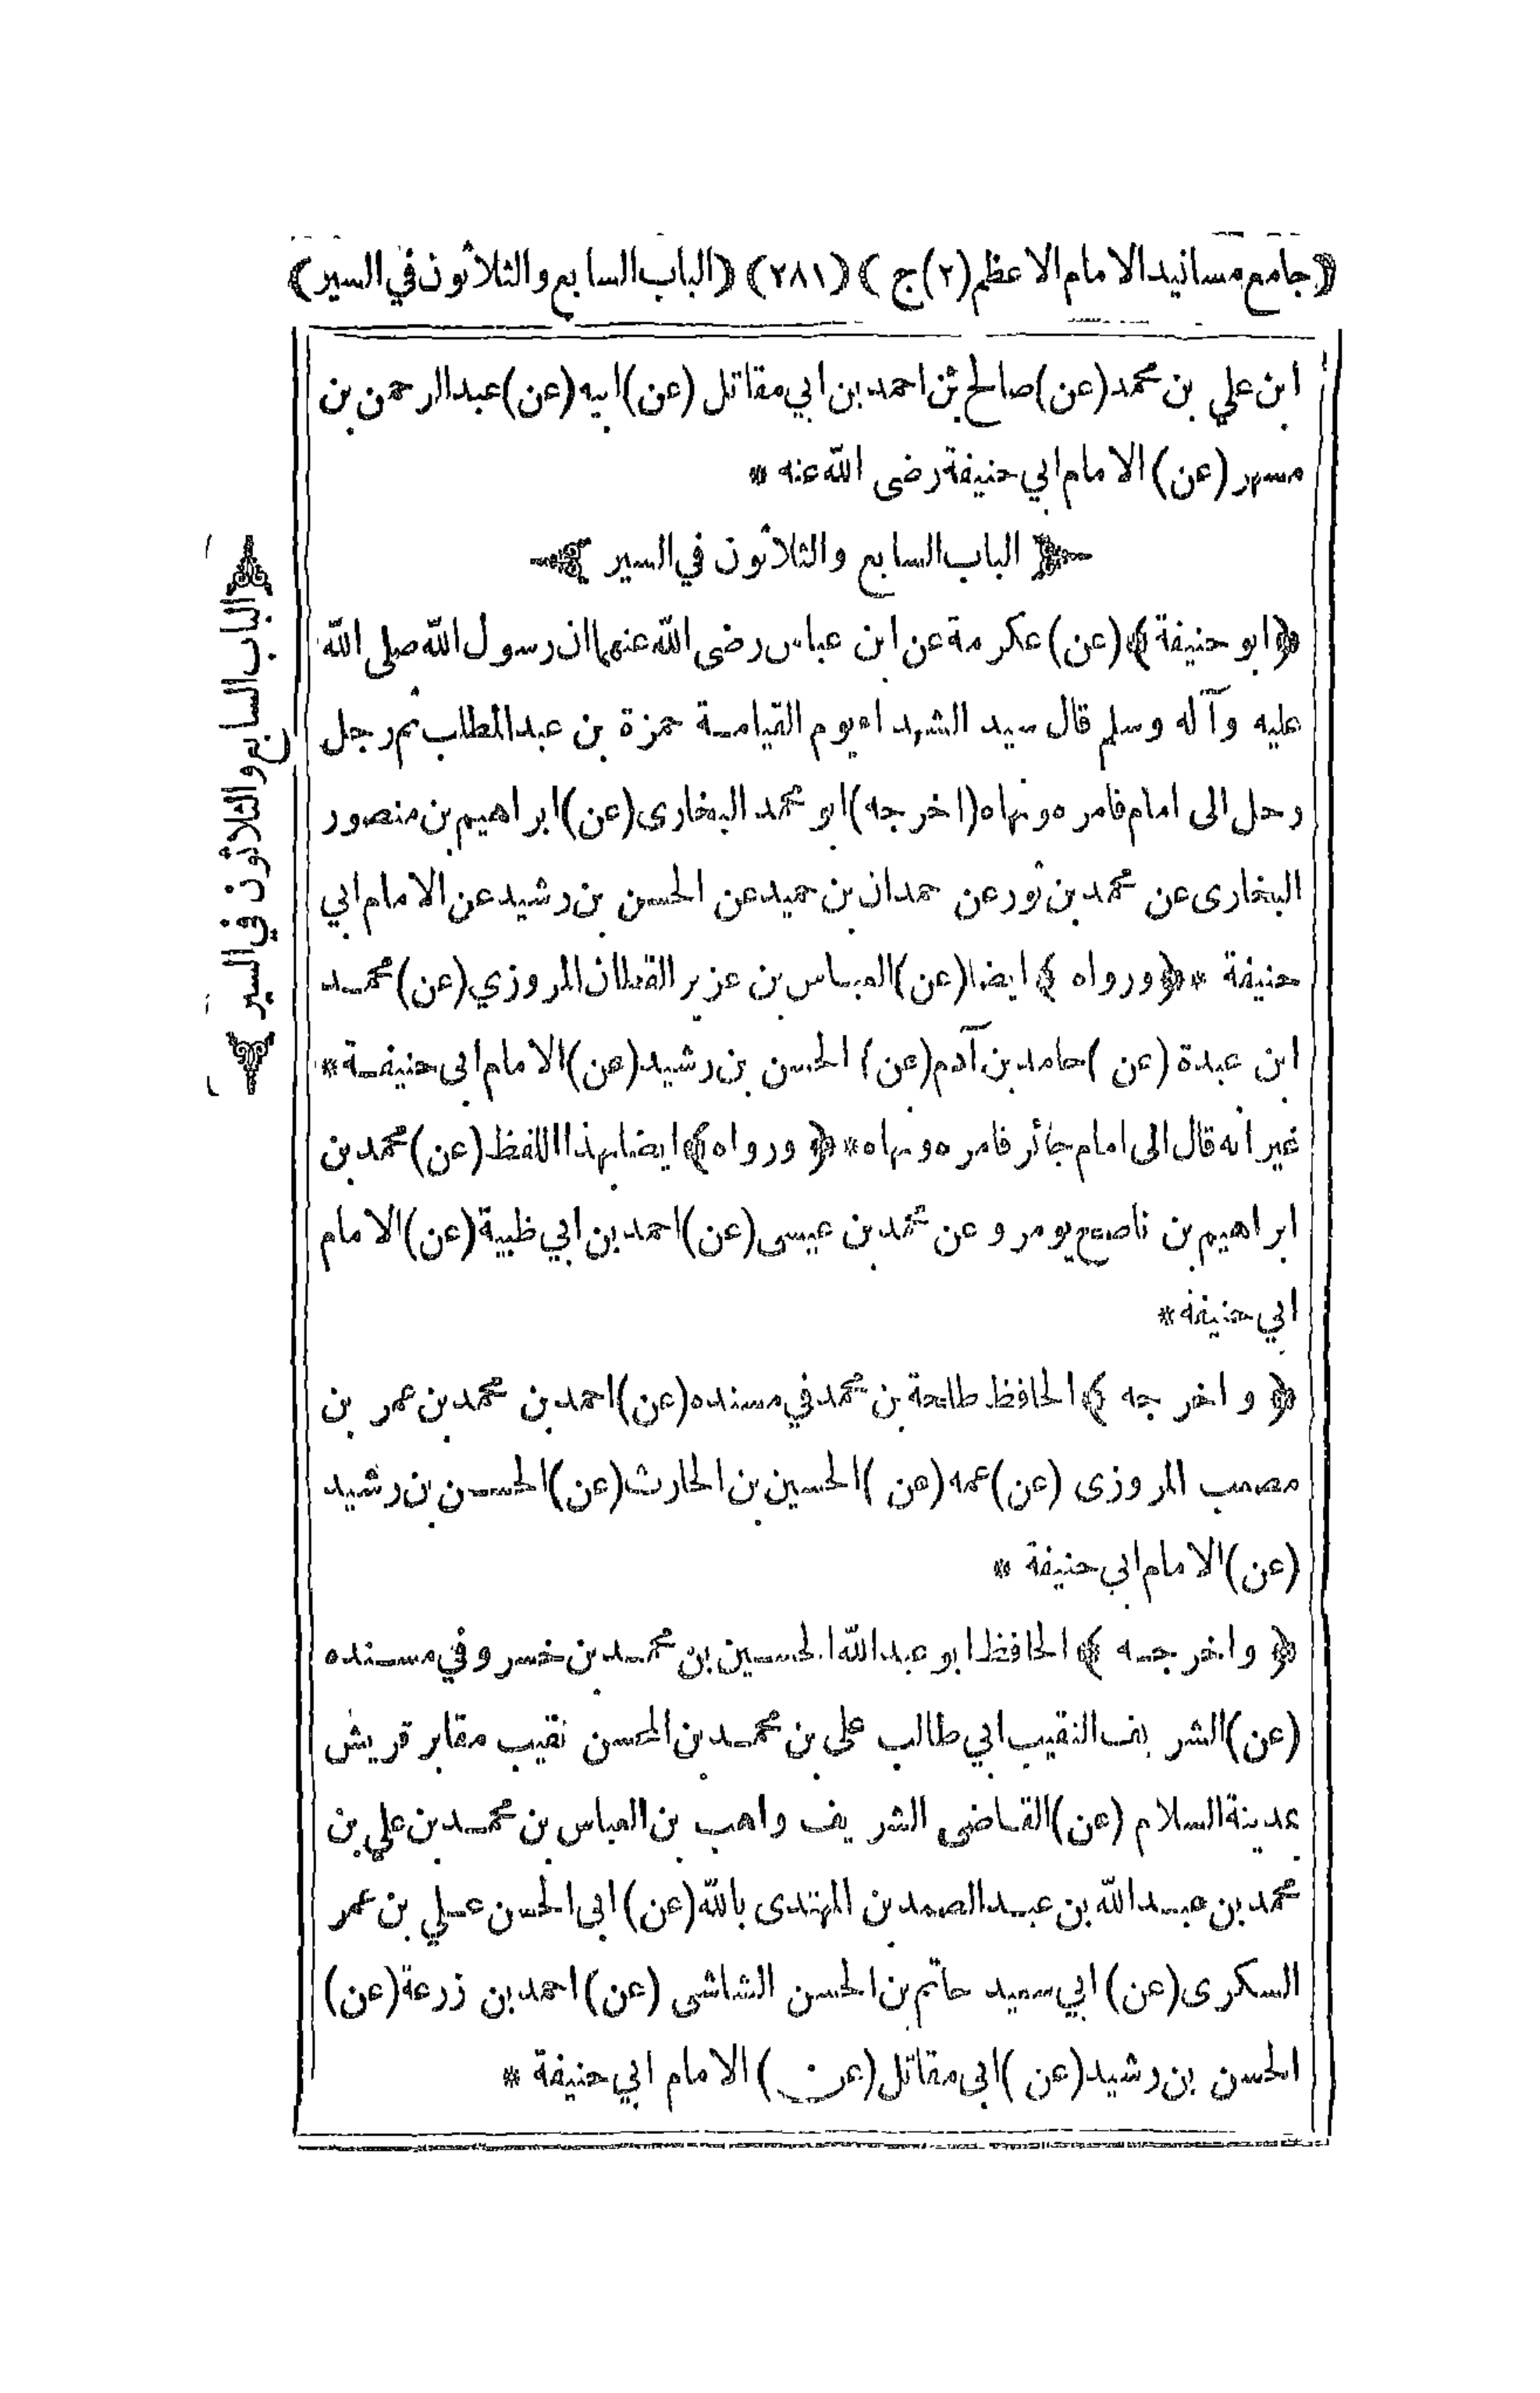 ﴿جامع مسانيد الامام الاعظم (٢) ج﴾ (٢٨١) ﴿الباب السابع والثلاثون في السير﴾
ابن علي بن محمد (عن) صالح بن احمد بن ابي مقاتل (عن) ابيه (عن) عبد الرحمن بن
مسهر (عن) الامام ابي حنيفة رضى الله عنه *
﴿ الباب السابع والثلاثون في السير ﴾
﴿ابو حنيفة﴾ (عن) عكرمة عن ابن عباس رضى الله عنهما ان رسول الله صلى الله
عليه وآله وسلم قال سيد الشهداء يوم القيامة حمزة بن عبد المطلب ثم رجل
دخل الى امام فامره ونهاه (اخرجه) ابو محمد البخارى (عن) ابراهيم بن منصور
البخارى عن محمد بن ثور عن حمدان بن حميد عن الحسن بن رشيد عن الامام ابي
حنيفة * ﴿ورواه﴾ ايضا (عن) العباس بن عزير القطان المروزي (عن) محمد
ابن عبدة (عن) حامد بن آدم (عن) الحسن بن رشيد (عن) الامام ابى حنيفة *
غير انه قال الى امام جائر فامره ونهاه * ﴿ورواه﴾ ايضا بهذا اللفظ (عن) محمد بن
ابراهيم بن ناصح وعن محمد بن عيسى (عن) احمد بن ابي ظبية (عن) الامام
ابي حنيفة *
﴿واخرجه﴾ الحافظ طلحة بن محمد في مسنده (عن) احمد بن محمد بن عمر بن
مصعب المروزى (عن) عمه (عن) الحسين بن الحارث (عن) الحسن بن رشيد
(عن) الامام ابي حنيفة *
﴿واخرجه﴾ الحافظ ابو عبد الله الحسين بن محمد بن خسرو في مسنده
(عن) الشريف النقيب ابي طالب على بن محمد بن المحسن نقيب مقابر قريش
بمدينة السلام (عن) القاضى الشريف واهب بن العباس بن محمد بن علي بن
محمد بن عبد الله بن عبد الصمد بن المهتدى بالله (عن) ابى الحسن علي بن عمر
السكرى (عن) ابي سعيد حاتم بن الحسن الشاشى (عن) احمد بن زرعة (عن)
الحسن بن رشيد (عن) ابى مقاتل (عن) الامام ابي حنيفة *
﴿الباب السابع والثلاثون في السير﴾